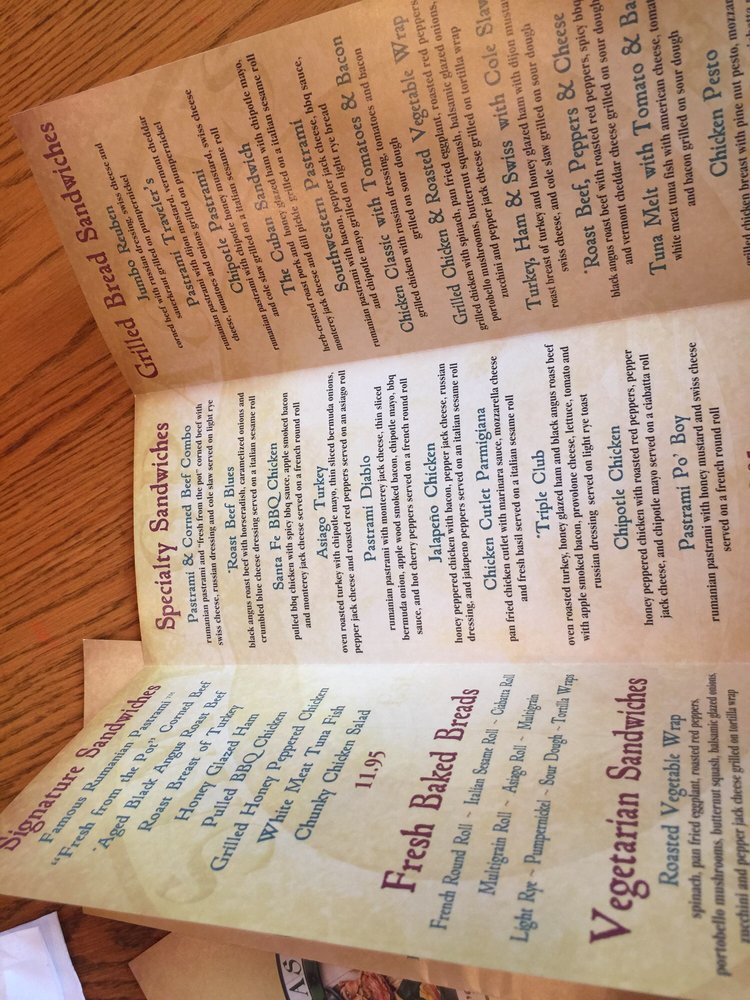 Signature Sandwiches
Famous Rumanian Pastrami™
"Fresh from the Pot" Corned Beef
*Aged Black Angus Roast Beef
Roast Breast of Turkey
Honey Glazed Ham
Pulled BBQ Chicken
Grilled Honey Peppered Chicken
White Meat Tuna Fish
Chunky Chicken Salad
11.95
Fresh Baked Breads
French Round Roll ~ Italian Sesame Roll ~ Ciabatta Roll
Multigrain Roll ~ Asiago Roll ~ Multigrain
Light Rye ~ Pumpernickel ~ Sour Dough ~ Tortilla Wraps
Vegetarian Sandwiches
Roasted Vegetable Wrap
spinach, pan fried eggplant, roasted red peppers,
portobello mushrooms, butternut squash, balsamic glazed onions,
zucchini and pepper jack cheese grilled on tortilla wrap
Specialty Sandwiches
Pastrami & Corned Beef Combo
rumanian pastrami and "fresh from the pot" corned beef with
swiss cheese, russian dressing and cole slaw served on light rye
*Roast Beef Blues
black angus roast beef with horseradish, caramelized onions and
crumbled blue cheese dressing served on a italian sesame roll
Santa Fe BBQ Chicken
pulled bbq chicken with spicy bbq sauce, apple smoked bacon
and monterey jack cheese served on a french round roll
Asiago Turkey
oven roasted turkey with chipotle mayo, thin sliced bermuda onions,
pepper jack cheese and roasted red peppers served on an asiago roll
Pastrami Diablo
rumanian pastrami with monterey jack cheese, thin sliced
bermuda onion, apple wood smoked bacon, chipotle mayo, bbq
sauce, and hot cherry peppers served on a french round roll
Jalapeño Chicken
honey peppered chicken with bacon, pepper jack cheese, russian
dressing, and jalapeno peppers served on an italian sesame roll
Chicken Cutlet Parmigiana
pan fried chicken cutlet with marinara sauce, mozzarella cheese
and fresh basil served on a italian sesame roll
*Triple Club
oven roasted turkey, honey glazed ham and black angus roast beef
with apple smoked bacon, provolone cheese, lettuce, tomato and
russian dressing served on light rye toast
Chipotle Chicken
honey peppered chicken with roasted red peppers, pepper
jack cheese, and chipotle mayo served on a ciabatta roll
Pastrami Po' Boy
rumanian pastrami with honey mustard and swiss cheese
served on a french round roll
Grilled Bread Sandwiches
Jumbo Reuben
corned beef with russian dressing, swiss cheese and
sauerkraut grilled on pumpernickel
Pastrami Traveler's
pastrami with dijon mustard, vermont cheddar
and onions grilled on pumpernickel
Chipotle Pastrami
rumanian pastrami with honey mustard, swiss cheese
The Cuban Sandwich
herb-crusted roast pork and honey glazed ham with chipotle mayo,
monterey jack cheese and dill pickle grilled on a italian sesame roll
Southwestern Pastrami
rumanian pastrami with bacon, pepper jack cheese, bbq sauce,
and chipotle mayo grilled on light rye bread
Chicken Classic with Tomatoes & Bacon
grilled chicken with russian dressing, tomatoes and bacon
grilled on sour dough
Grilled Chicken & Roasted Vegetable Wrap
grilled chicken with spinach, pan fried eggplant, roasted red peppers,
portobello mushrooms, butternut squash, balsamic glazed onions,
zucchini and pepper jack cheese grilled on tortilla wrap
Turkey, Ham & Swiss with Cole Slaw
roast breast of turkey and honey glazed ham with dijon
swiss cheese, and cole slaw grilled on sour dough
*Roast Beef, Peppers & Cheese
black angus roast beef with roasted red peppers, spicy bbq
and vermont cheddar cheese grilled on sour dough
Tuna Melt with Tomato &
white meat tuna fish with american cheese,
and bacon grilled on sour dough
Chicken Pesto
chicken breast with pine nut pesto,
AS